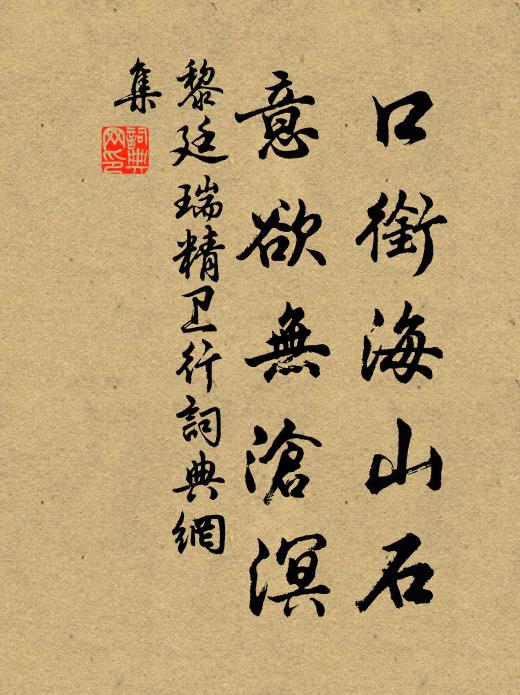 口銜海山石
意欲無滄溟
黎廷瑞精卫行詞典網
集
詞典
网印